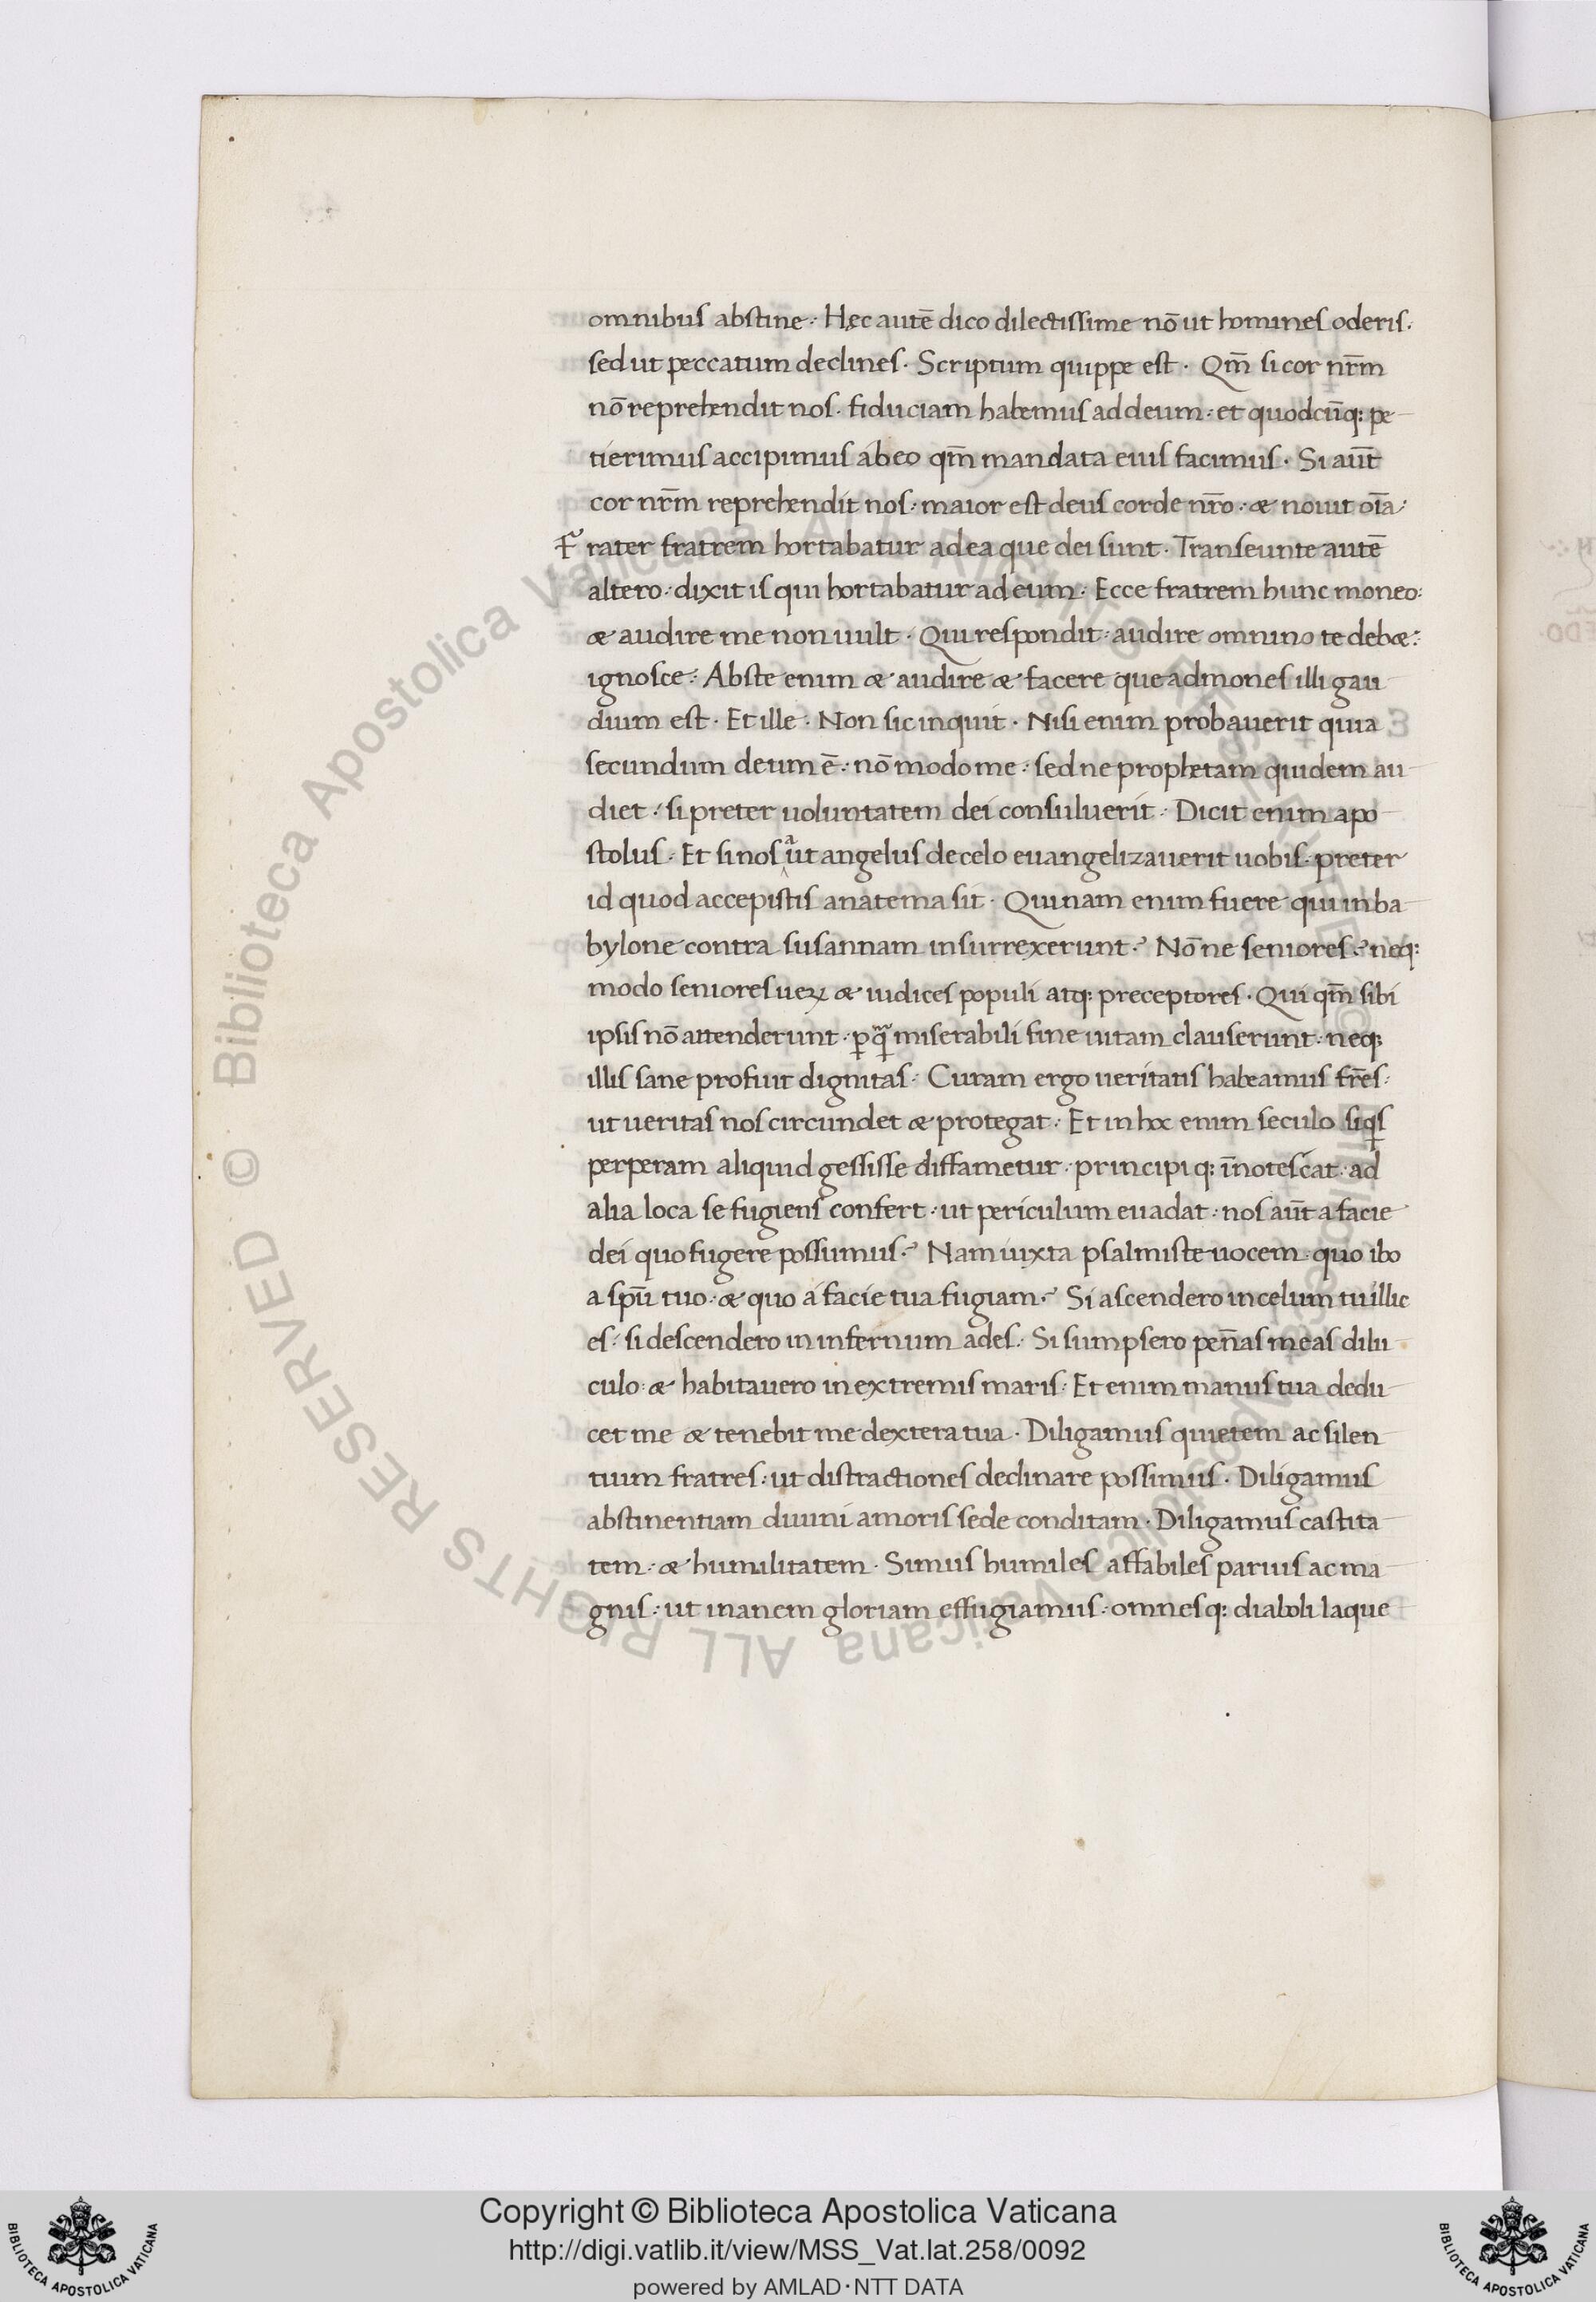 omnibus abstine · Hęc autē dico dilectissime nō ut homines oderis ·
sed ut peccatum declines · Scriptum quippe est · Qm̄ si cor nr̄m
nō reprehendit nos · fiduciam habemus ad deum · et quodcūq: pe
tierimus accipimus ab eo qm̄ mandata eius facimus · Si aūt
cor nr̄m reprehendit nos · maior est deus corde nr̄o · & nouit oīa ·
Frater fratrem hortabatur ad ea que dei sunt · Transeunte autē
altero · dixit is qui hortabatur ad eum · Ecce fratrem hunc moneo ·
& audire me non uult · Qui respondit · audire omnino te deb& ·
ignosce · Abs te enim & audire & facere que admones illi gau
dium est · Et ille · Non sic inquit · Nisi enim probauerit quia
secundum deum ē · nō modo me · sed ne prophetam quidem au
diet · si preter uoluntatem dei consuluerit · Dicit enim apo
stolus · Et si nos aūt angelus de celo euangelizauerit uobis · preter
id quod accepistis anatema sit · Quinam enim fuere qui in ba
bylone contra susannam insurrexerunt ? Nōne seniores ? neq:
modo seniores ueꝝ & iudices populi atq: preceptores · Qui qm̄ sibi
ipsis nō attenderunt · ꝑqᷓ miserabili fine uitam clauserunt · neq:
illis sane profuit dignitas · Curam ergo ueritatis habeamus fr̄es ·
ut ueritas nos circundet & protegat · Et in hoc enim seculo siqs
perperam aliquid gessisse diffametur · principiq: īnotescat · ad
alia loca se fugiens confert · ut periculum euadat · nos aūt a facie
dei quo fugere possumus ? Nam iuxta psalmiste uocem · quo ibo
a spū tuo · & quo a facie tua fugiam ? Si ascendero in celum tu illic
es · si descendero in infernum ades · Si sumpsero pen̄as meas dilu
culo · & habitauero in extremis maris · Et enim manus tua dedu
cet me & tenebit me dextera tua · Diligamus quietem ac silen
tium fratres · ut distractiones declinare possimus · Diligamus
abstinentiam diuini amoris sede conditam · Diligamus castita
tem · & humilitatem · Simus humiles affabiles paruis ac ma
gnis · ut inanem gloriam effugiamus · omnesq: diaboli laque
© Biblioteca Apostolica Vaticana ALL RIGHTS RESERVED © Biblioteca Apostolica Vaticana ALL RIGHTS RESERVED
Copyright © Biblioteca Apostolica Vaticana
http://digi.vatlib.it/view/MSS_Vat.lat.258/0092
powered by AMLAD·NTT DATA
BIBLIOTECA APOSTOLICA VATICANA
BIBLIOTECA APOSTOLICA VATICANA